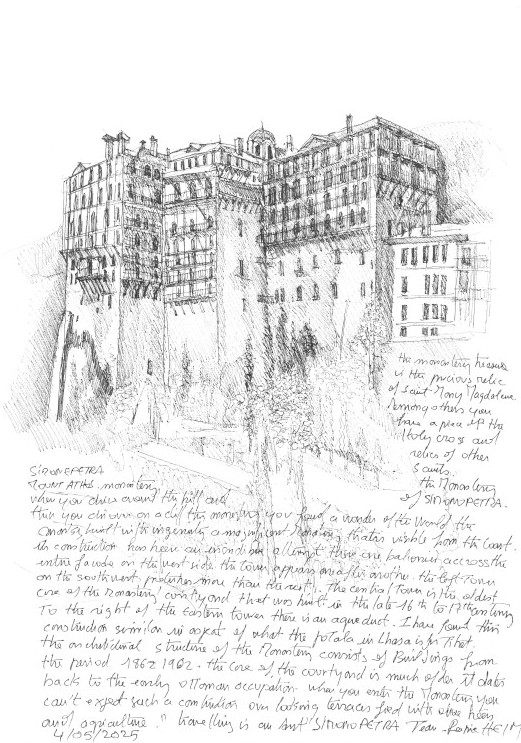 the monastery treasure
is the precious relic
of Saint Mary Magdalene
among others you
have a piece of the
Holy cross and
relics of other
saints.
the Monastery
of SIMONOPETRA.
SIMONEPETRA
MOUNT ATHOS. monastery
when you drive around the hill and
then you arrive on a cliff the monastery you found, a wonder of the World the
built with ingenuity a magnificent building that is visible from the Coast.
its construction has been an there are balconies accross the
entire facade on the west side the tower appears one after another. the left Tower
on the southwest protrudes more than the rest. The central Tower is the oldest
core of the monastery courtyard that was built in the late 16 th to 17th century
To the right of the Eastern tower there is an aqueduct. I have found this
construction similar in aspect of what the potala in Lhasa is for Tibet.
the architectural structure of the Monastery consists of Buildings from
the period 1862 1902. the core of the courtyard is much older it dates
back to the early ottoman occupation when you enter the Monastery you
can't expect such a construction over looking terraces with olive trees
and agriculture." travelling is an Art" SIMONOPETRA
4/05/2025